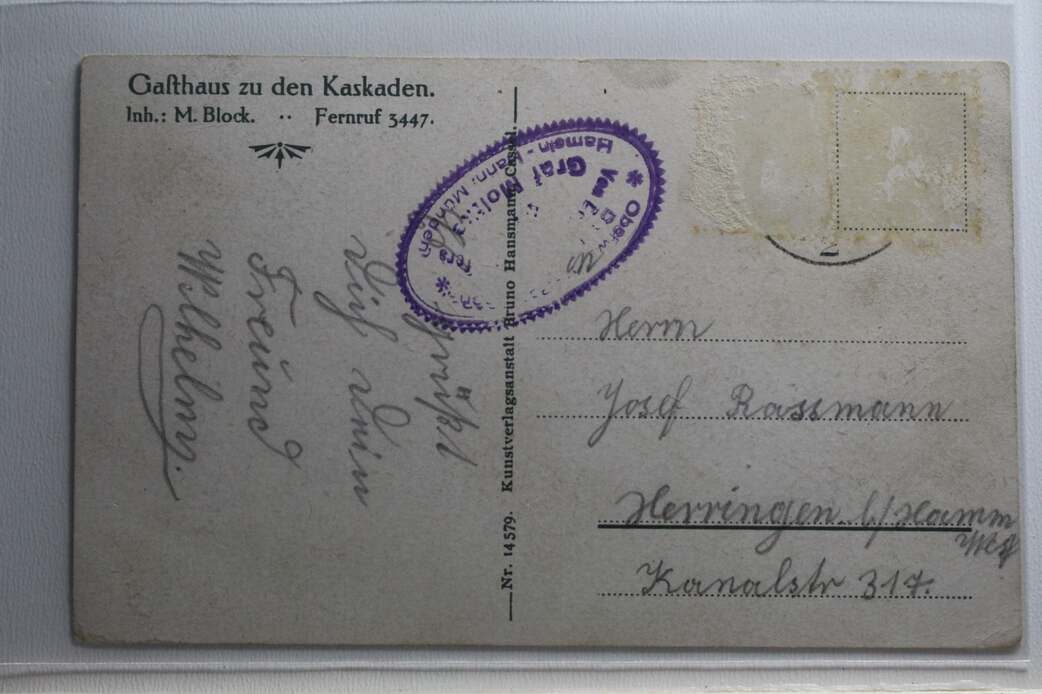 Gasthaus zu den Kaskaden.
Inh.: M. Block. ·· Fernruf 3447.
grüßt
Dich Dein
Freund
Wilhelm.
Nr. 14579. Kunstverlagsanstalt Bruno Hansmann, Cassel.
Graf Moltke
Hameln - Hann. Münden
Herrn
Josef Rassmann
Herringen b/Hamm
Westf
Kanalstr 317.